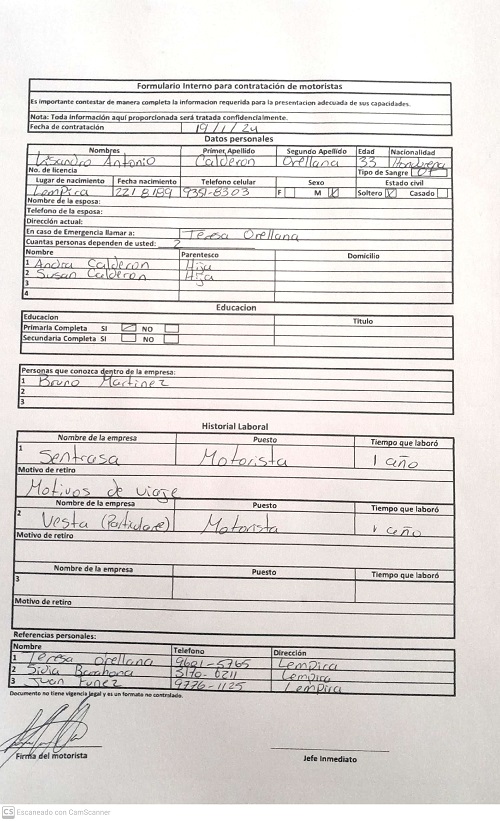 Formulario Interno para contratación de motoristas
Es importante contestar de manera completa la informacion requerida para la presentacion adecuada de sus capacidades.
Nota: Toda información aquí proporcionada será tratada confidencialmente.
Fecha de contratación 19/1/24
Datos personales
Nombres Primer Apellido Segundo Apellido Edad Nacionalidad
Lisandro Antonio Calderon Orellana 33 Hondurena
No. de licencia Tipo de Sangre O+
Lugar de nacimiento Fecha nacimiento Telefono celular Sexo Estado civil
Lempira 22/8/89 9351-8303 F M Soltero Casado
Nombre de la esposa:
Telefono de la esposa:
Dirección actual:
En caso de Emergencia llamar a: Teresa Orellana
Cuantas personas dependen de usted: 2
Nombre Parentesco Domicilio
1 Andra Calderon Hija
2 Susan Calderon Hija
3
4
Educacion
Educacion Titulo
Primaria Completa SI NO
Secundaria Completa SI NO
Personas que conozca dentro de la empresa:
1 Bruno Martinez
2
3
Historial Laboral
Nombre de la empresa Puesto Tiempo que laboró
1 Sentrasa Motorista 1 año
Motivo de retiro
Motivos de viaje
Nombre de la empresa Puesto Tiempo que laboró
2 Vesta Motorista 1 año
Motivo de retiro
Nombre de la empresa Puesto Tiempo que laboró
3
Motivo de retiro
Referencias personales:
Nombre Telefono Dirección
1 Teresa Orellana 9601-5765 Lempira
2 Silvia Barahona 3170-0211 Lempira
3 Juan Funez 9776-1125 Lempira
Documento no tiene vigencia legal y es un formato no controlado.
Firma del motorista Jefe Inmediato
CS Escaneado con CamScanner